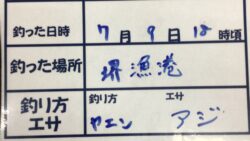 釣った日時 7月9日18時頃
釣った場所 堺漁港
釣り方 エサ
釣り方 エサ
ヤエン アジ